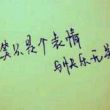 笑只是个表情
与快乐无关